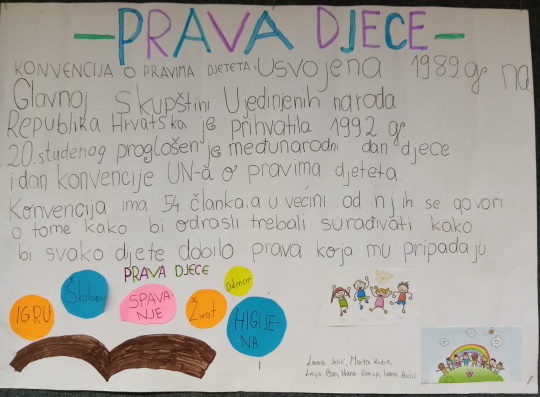 PRAVA DJECE
KONVENCIJA O PRAVIMA DJETETA: Usvojena 1989 g. na
Glavnoj Skupštini Ujedinjenih naroda
Republika Hrvatska je prihvatila 1992 g.
20. studenog proglošen je međunarodni dan djece
i dan konvencije UN-a o pravima djeteta.
Konvencija ima 54 članka.a u većini od njih se govori
o tome kako bi odrasli trebali surađivati kako
bi svako dijete dobilo prava koja mu pripadaju
PRAVA DJECE
IGRU
SPAVA-
NJE
Život
odmor
HIGIJE-
NA
Marta
Lucija Ban, Hana